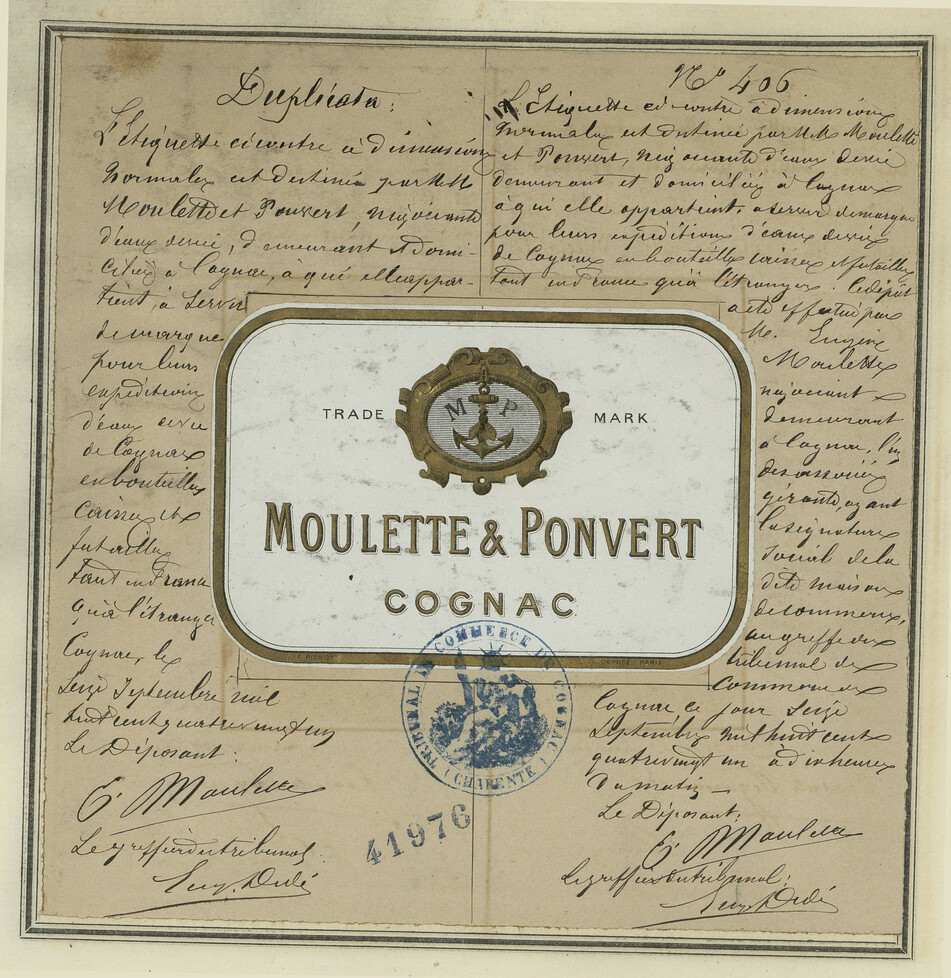 Duplicata:
L'étiquette ci contre à dimensions
normales est destinée par MM
Moulette et Ponvert, négociants
d'eaux de vie, demeurant et domi-
ciliés à Cognac, à qui elle appar-
tient, à servir
de marque
pour leurs
expéditions
d'eaux de vie
de Cognac
en bouteilles
caisses et
futailles
tant en France
qu'à l'étranger
Cognac, le
seize Septembre mil
huit cent quatre vingt un
Le Déposant:
E. Moulette
Le greffier du tribunal:
Eug. Dédé
No 406
L'Etiquette ci contre à dimensions
normales est destinée par MM Moulette
et Ponvert, négociants d'eaux de vie
demeurant et domiciliés à Cognac
à qui elle appartient, à servir de marque
pour leurs expéditions d'eaux de vie
de Cognac en bouteilles caisses et futailles
tant en France qu'à l'étranger. Le dépôt
a été effectué par
M. Eugène
Moulette
négociant
demeurant
à Cognac, l'un
des associés
gérants, ayant
la signature
social de la
dite maison
de commerce,
au greffe du
tribunal de
commerce de
Cognac ce jour seize
Septembre mil huit cent
quatre vingt un à dix heures
du matin
Le Déposant:
E. Moulette
Le greffier du tribunal:
Eug. Dédé
TRADE MARK
M P
MOULETTE & PONVERT
COGNAC
DÉPOSÉ PARIS
TRIBUNAL DE COMMERCE DE COGNAC
(CHARENTE)
41976